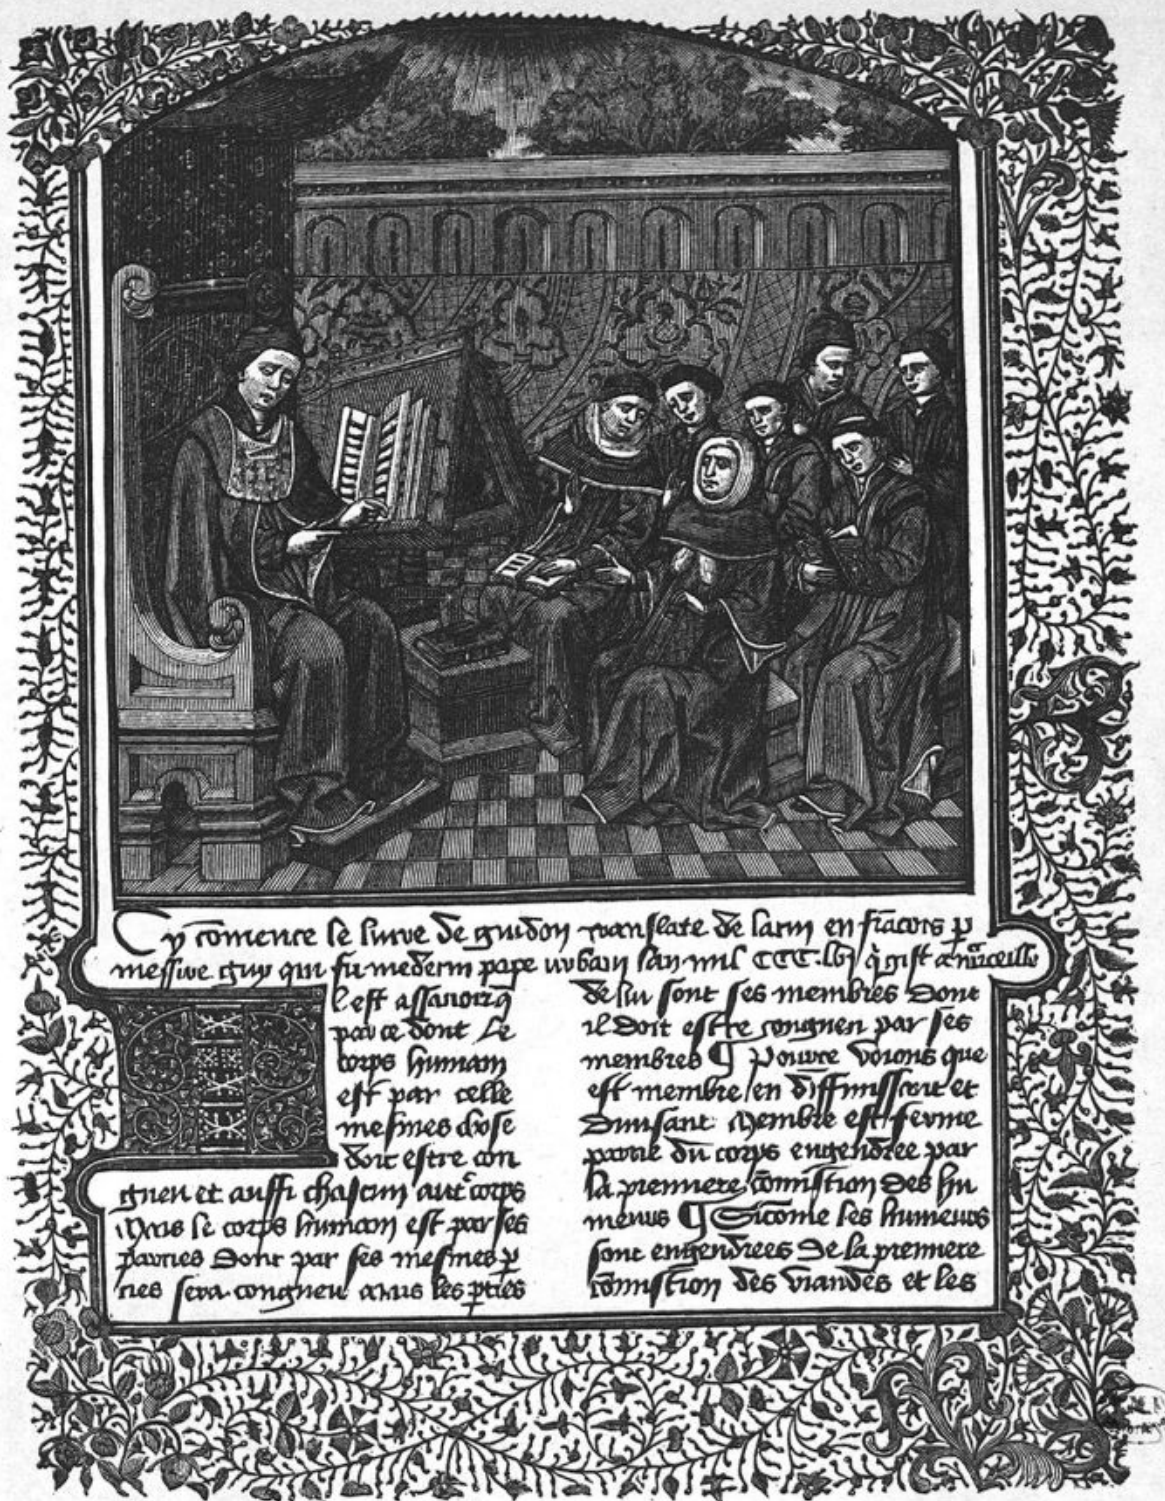 Cy cōmence le livre de guidon translate de latin en frācois p
messire guy qui fu medecin pape urbain lan mil CCC. lxj q̄ gist a m̄rceille
l est assavoir q̄
par ce dont le
corps humain
est par celle
mesmes chose
doit estre con
gneu et aussi chascun autẽ corps
Mais le corps humain est par ses
parties Donc par ses mesmes p
ties sera congneu mais les pties
de lui sont ses membres Dont
il doit estre congneu par ses
membres ¶ Pource voions que
est membre en diffinissant et
Divisant Membre est ferme
partie du corps engendree par
la premiere cōmistion des hu
meurs ¶ Sicōme les humeurs
sont engendrees De la premiere
cōmistion des viandes et les